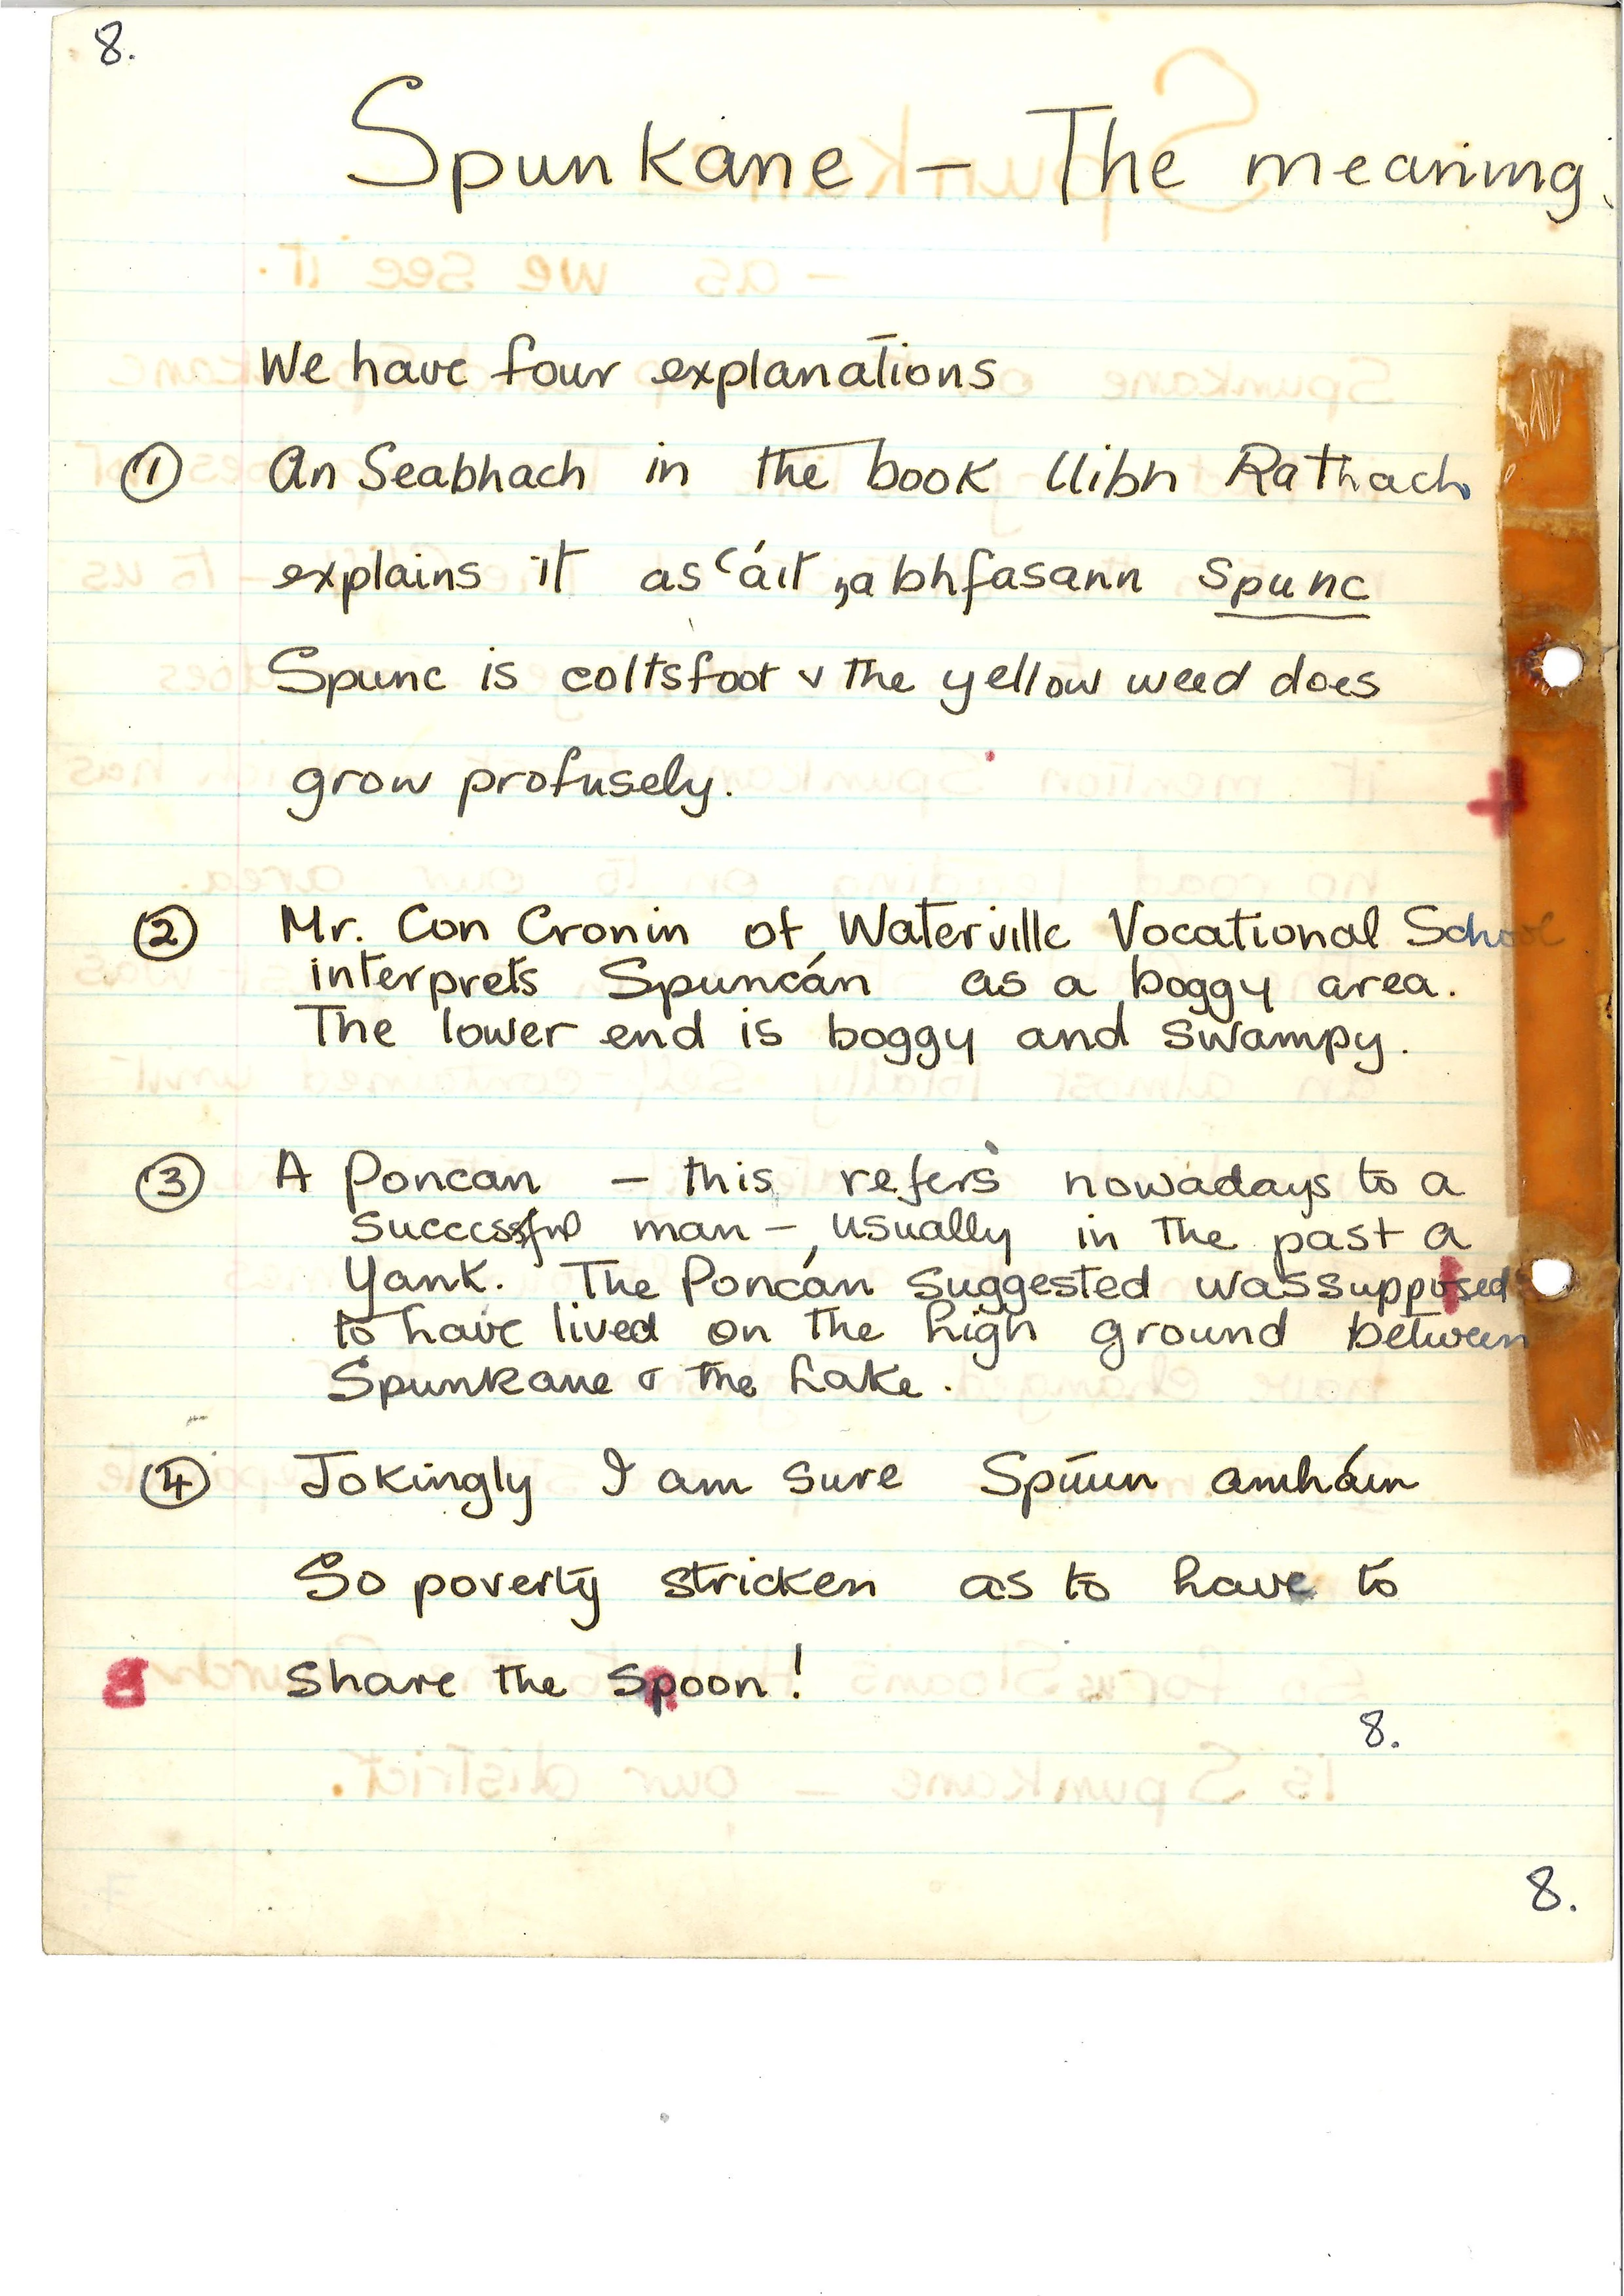 8.
Spunkane – The meaning.
We have four explanations
① An Seabhach in the book Uibh Rathach
explains it as 'áit ,a bhfasann spunc
Spunc is coltsfoot & the yellow weed does
grow profusely.
② Mr. Con Cronin of Waterville Vocational School
interprets Spuncán as a boggy area.
The lower end is boggy and swampy.
③ A Poncan – this refers nowadays to a
successful man –, usually in the past a
Yank. The Poncán suggested was supposed
to have lived on the high ground between
Spunkane & the Lake.
④ Jokingly I am sure Spúun amháin
So poverty stricken as to have to
8 share the spoon!
8.
8.